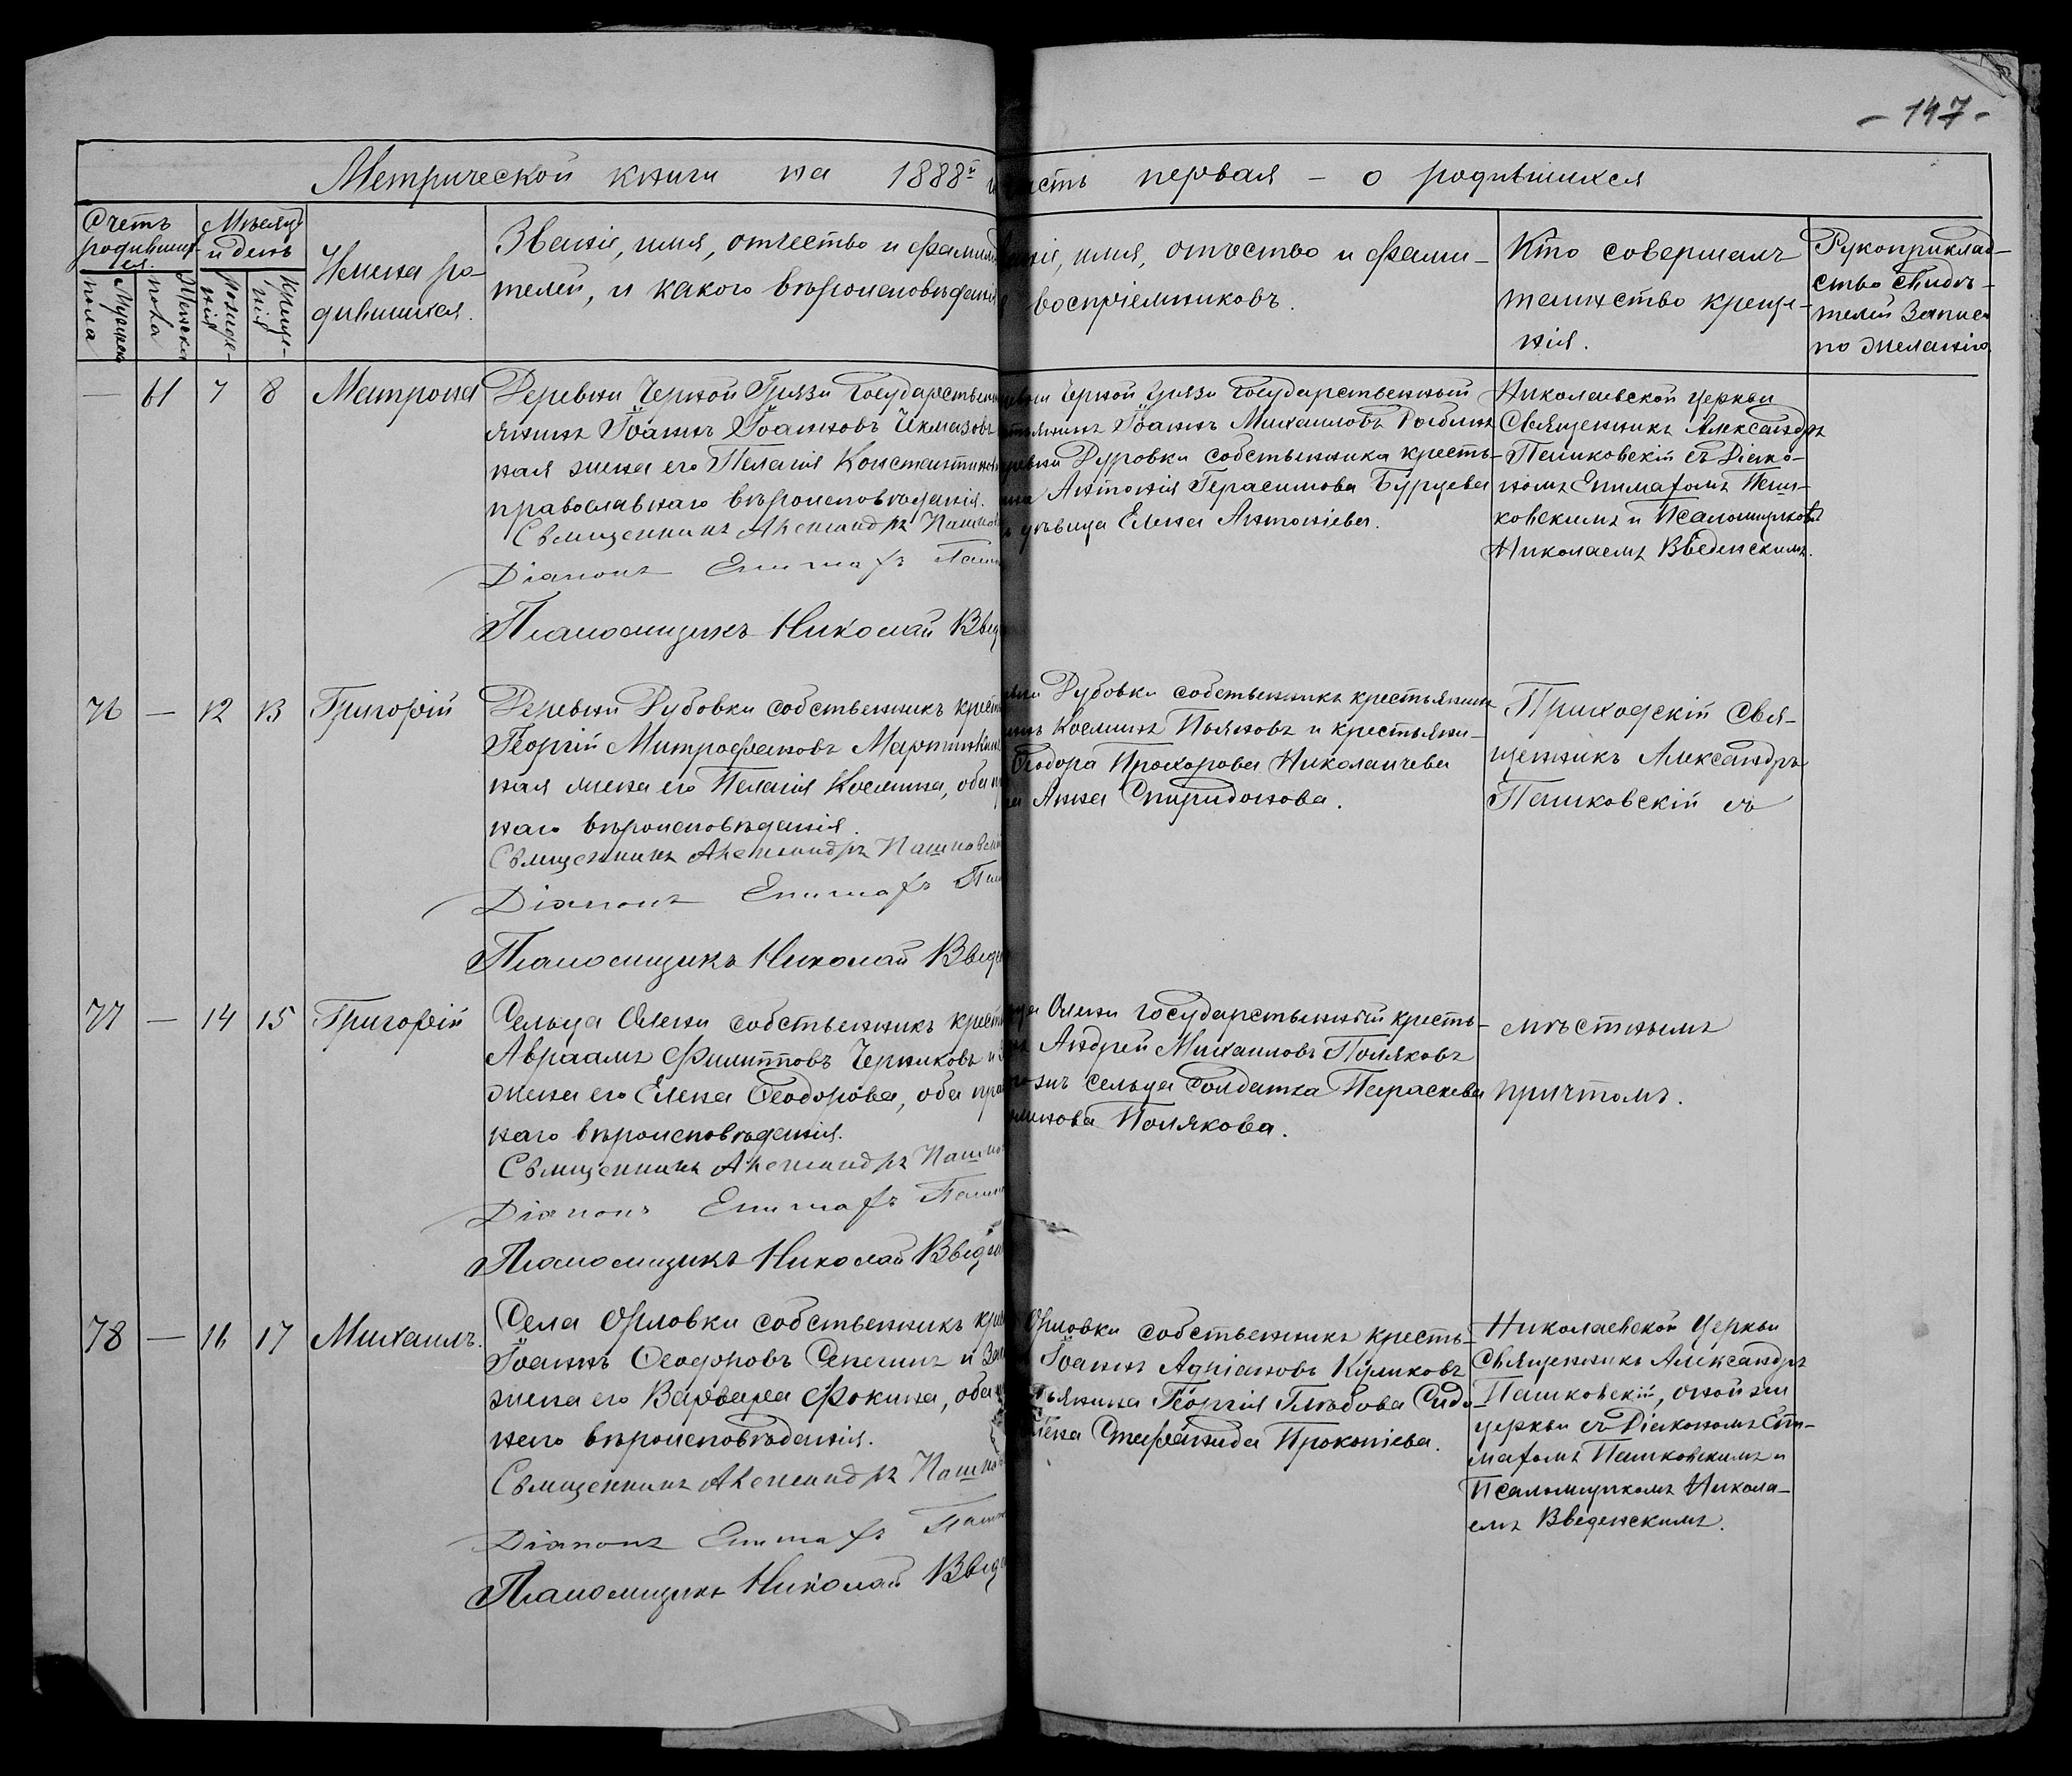 - 147 -
Метрической книги на 1888й часть первая – о родившихся
Счетъ родившихся.
Мужеска пола
Женска пола
Мѣсяцъ и день
рожденія
крещенія
Имена родившихся.
Званіе, имя, отчество и фамил
телей, и какого вѣроисповѣданія
званіе, имя, отчество и фами-
воспріемниковъ.
Кто совершалъ
таинство креще-
нія.
Рукоприклад-
ство свидѣ-
телей записи
по желанію.
— 61 7 8 Матрона
Деревни Черной Грязи Государствен
янинъ Іоаннъ Іоанновъ Чкмазовъ
ная жена его Пелагія Константинов
православнаго вѣроисповѣданія.
Священникъ Александръ Пашков
Діаконъ Епимахъ Пашк
Псаломщикъ Николай Введ
Черной Грязи Государственный
Іоаннъ Михаиловъ Рыбинъ
Дуровки собственника кресть-
Антонія Герасимова Бурцева
дѣвица Елена Антоніева.
Николаевской церкви
Священникъ Александръ
Пашковскій съ Діако-
номъ Епимахомъ Паш-
ковскимъ и Псаломщикомъ
Николаемъ Введенскимъ.
76 — 12 13 Григорій
Деревни Дубовки собственникъ крест
Георгій Митрофановъ Мартынъ
ная жена его Пелагія Косьмина, оба п
наго вѣроисповѣданія.
Священникъ Александръ Пашковскі
Діаконъ Епимахъ Паш
Псаломщикъ Николай Введе
Дубовки собственникъ крестьянинъ
Косьминъ Пьяновъ и крестьяни-
Ѳеодора Прохорова Николаичева
Анна Спиридонова.
Приходскій Свя-
щенникъ Александръ
Пашковскій съ
77 — 14 15 Григорій
Сельца Олени собственникъ крест
Авраамъ Филипповъ Черниковъ и З
жена его Елена Ѳеодорова, оба пра
наго вѣроисповѣданія.
Священникъ Александръ Пашко
Діаконъ Епимахъ Пашк
Псаломщикъ Николай Введен
Олени государственный кресть-
Андрей Михаиловъ Поляковъ
сельца солдатка Параскева
Полякова.
мѣстнымъ
причтомъ.
78 — 16 17 Михаилъ.
Села Орловки собственникъ кре
Іоаннъ Ѳеодоровъ Сенечинъ и Зак
жена его Варвара Фокина, оба
наго вѣроисповѣданія.
Священникъ Александръ Пашко
Діаконъ Епимахъ Пашк
Псаломщикъ Николай Введ
Орловки собственникъ кресть-
Іоаннъ Адріановъ Куликовъ
Георгія Глѣбова Сидо-
Стефанида Прокопіева.
Николаевской Церкви
Священникъ Александръ
Пашковскій, оной же
церкви съ Діакономъ Епи-
махомъ Пашковскимъ и
Псаломщикомъ Никола-
емъ Введенскимъ.